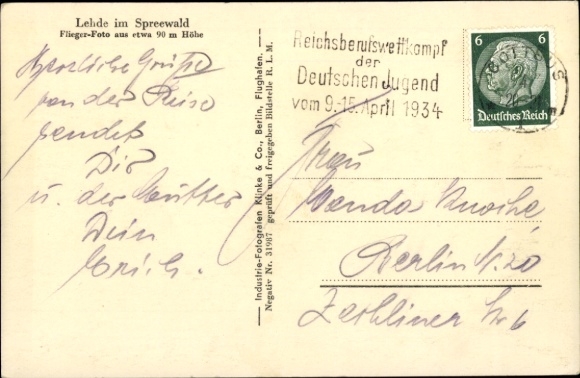 Lehde im Spreewald
Flieger-Foto aus etwa 90 m Höhe
Herzliche Grüße
von der Reise
sendet
Dir
u. der Mutter
Dein
Erich.
Industrie-Fotografen Klinke & Co., Berlin, Flughafen.
Negativ Nr. 31987 geprüft und freigegeben Bildstelle R. L. M.
Reichsberufswettkampf
der
Deutschen Jugend
vom 9.-15. April 1934
6 6
Deutsches Reich
COTTBUS
Frau
Wanda
Berlin N.20
Zechliner Str 6